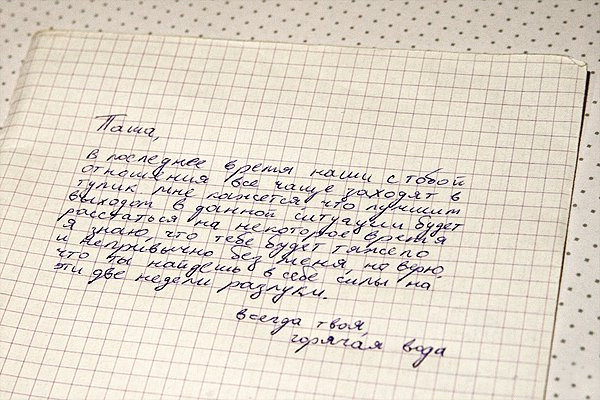 Паша,
в последнее время наши с тобой
отношения все чаще заходят в
тупик мне кажется что лучшим
выходом в данной ситуации будет
расстаться на некоторое время
я знаю, что тебе будет тяжело
и непривычно без меня, но верю,
что ты найдешь в себе силы на
эти две недели разлуки.
всегда твоя,
горячая вода